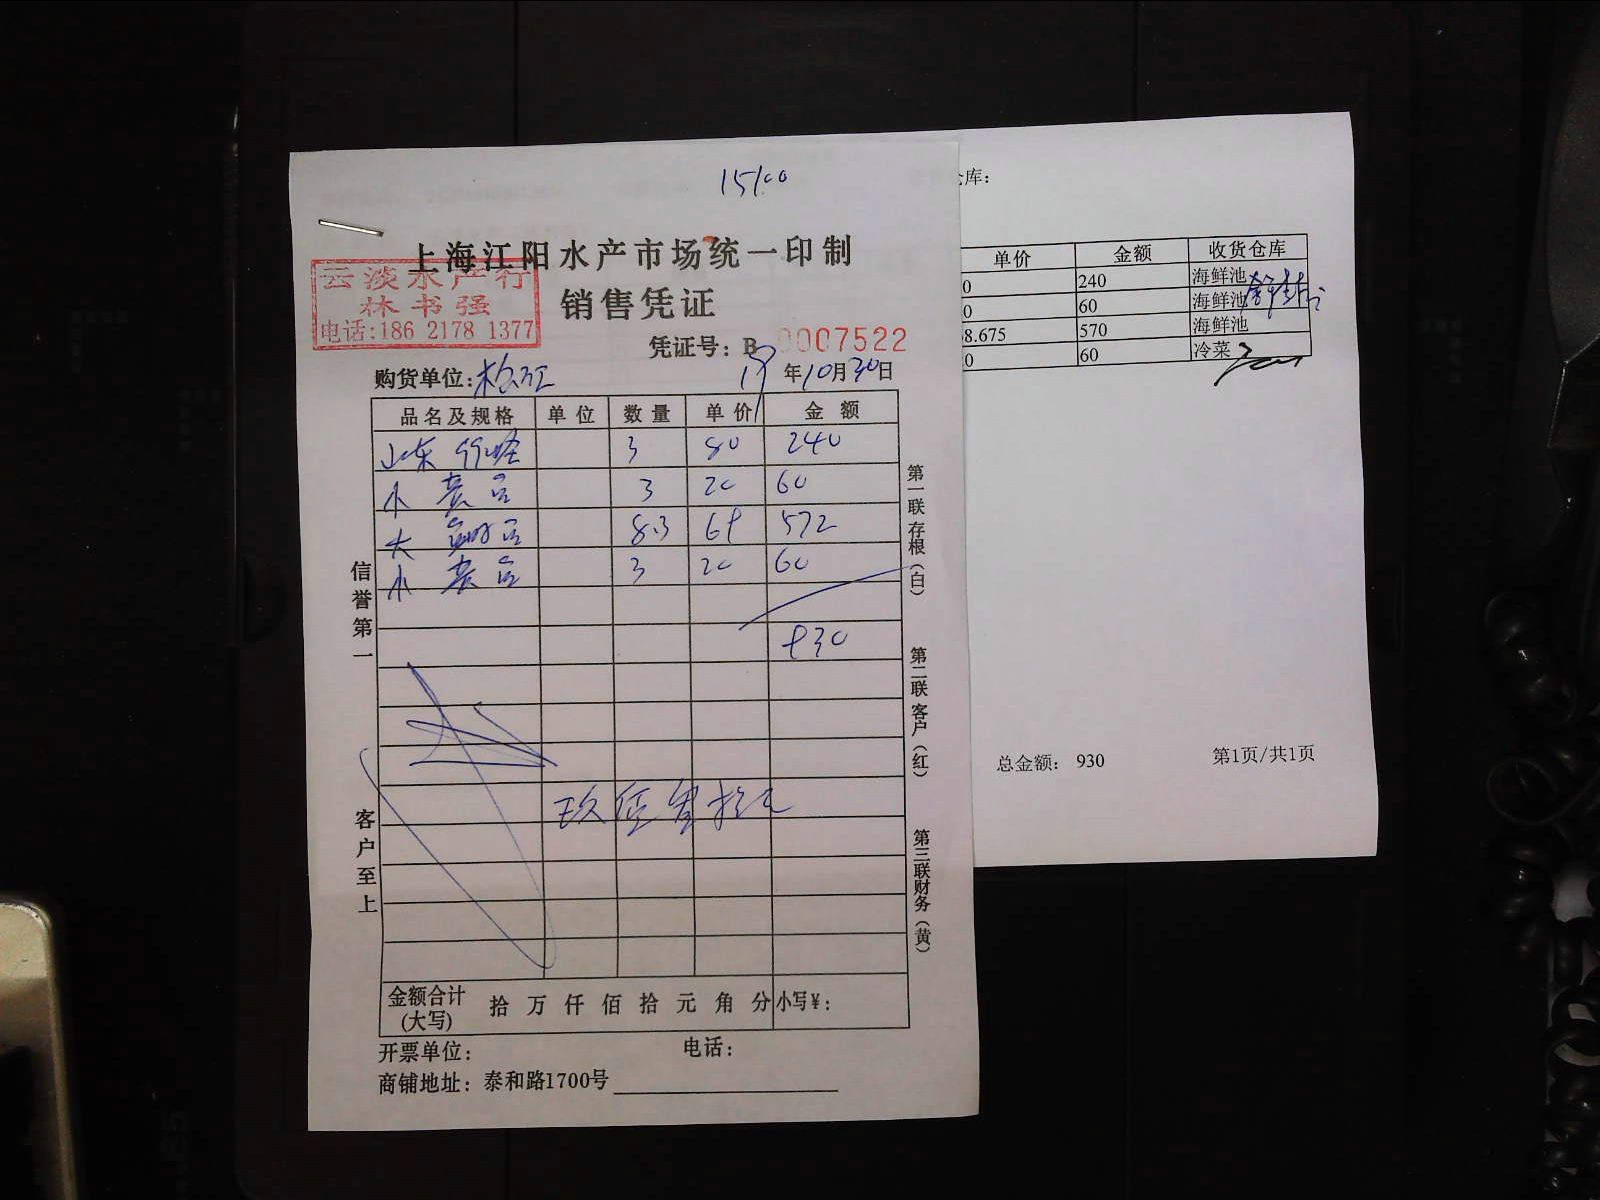 15:00
上海江阳水产市场统一印制
云淡水产行
林书强
电话:186 2178 1377
销售凭证
凭证号：B 0007522
购货单位:松江
19年10月30日
品名及规格 单位 数量 单价 金额
山东 3 80 240
小 3 20 60
大 8.3 69 572
小 3 20 60
930
玖佰叁拾元
信誉第一
客户至上
第一联存根（白）
第二联客户（红）
第三联财务（黄）
金额合计(大写) 拾万仟佰拾元角分 小写¥：
开票单位： 电话：
商铺地址：泰和路1700号
仓库：
单价 金额 收货仓库
0 240 海鲜池
0 60 海鲜池
8.675 570 海鲜池
0 60 冷菜
总金额： 930 第1页/共1页